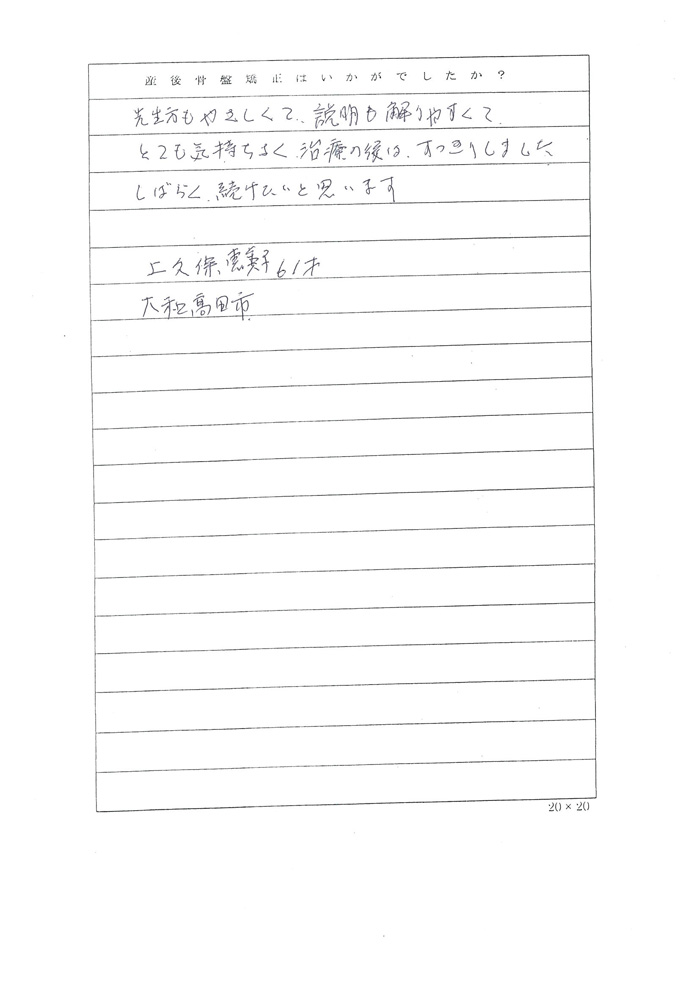 産後骨盤矯正はいかがでしたか?
先生方もやさしくて、説明も解りやすくて
とても気持ちよく、治療の後は、すっきりしました
しばらく、続けたいと思います
上久保、恵美子 61才
大和高田市
20×20